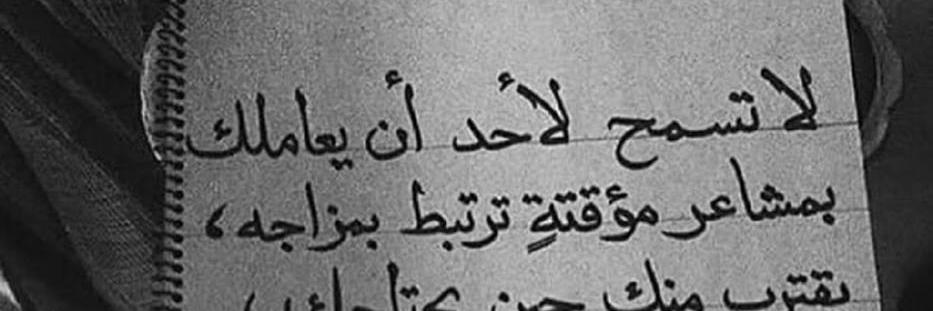 لا تسمح لأحد أن يعاملك
بمشاعر مؤقتةٍ ترتبط بمزاجه،
يقترب منك حين يحتاجك،